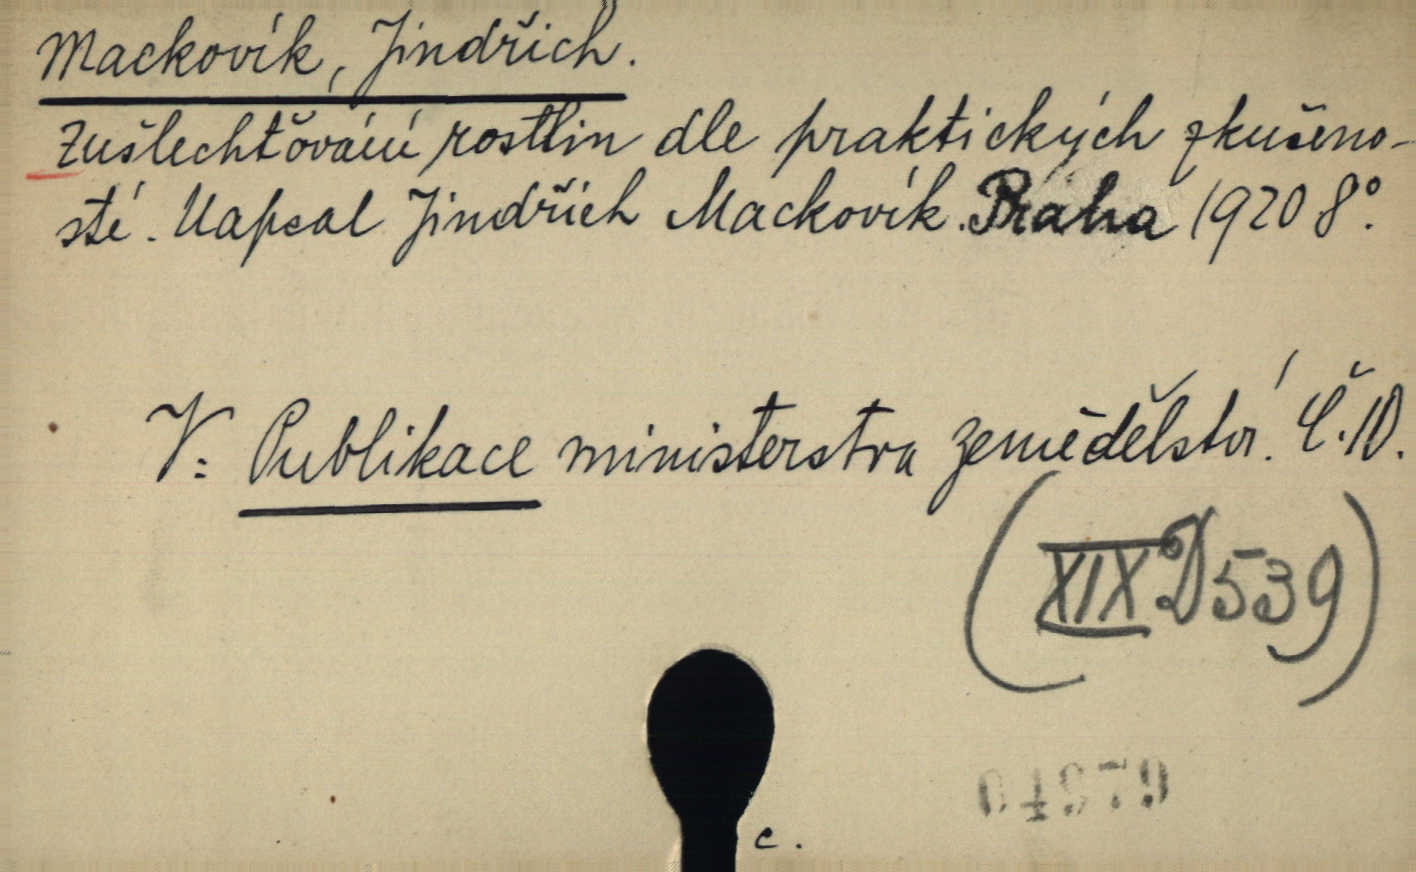 Mackovík, Jindřich.
Zušlechťování rostlin dle praktických zkušeno-
stí. Napsal Jindřich Mackovík. Praha 1920 8°.
V: Publikace ministerstva zemědělství. Č. 10.
(XIX D 539)
04979
c.